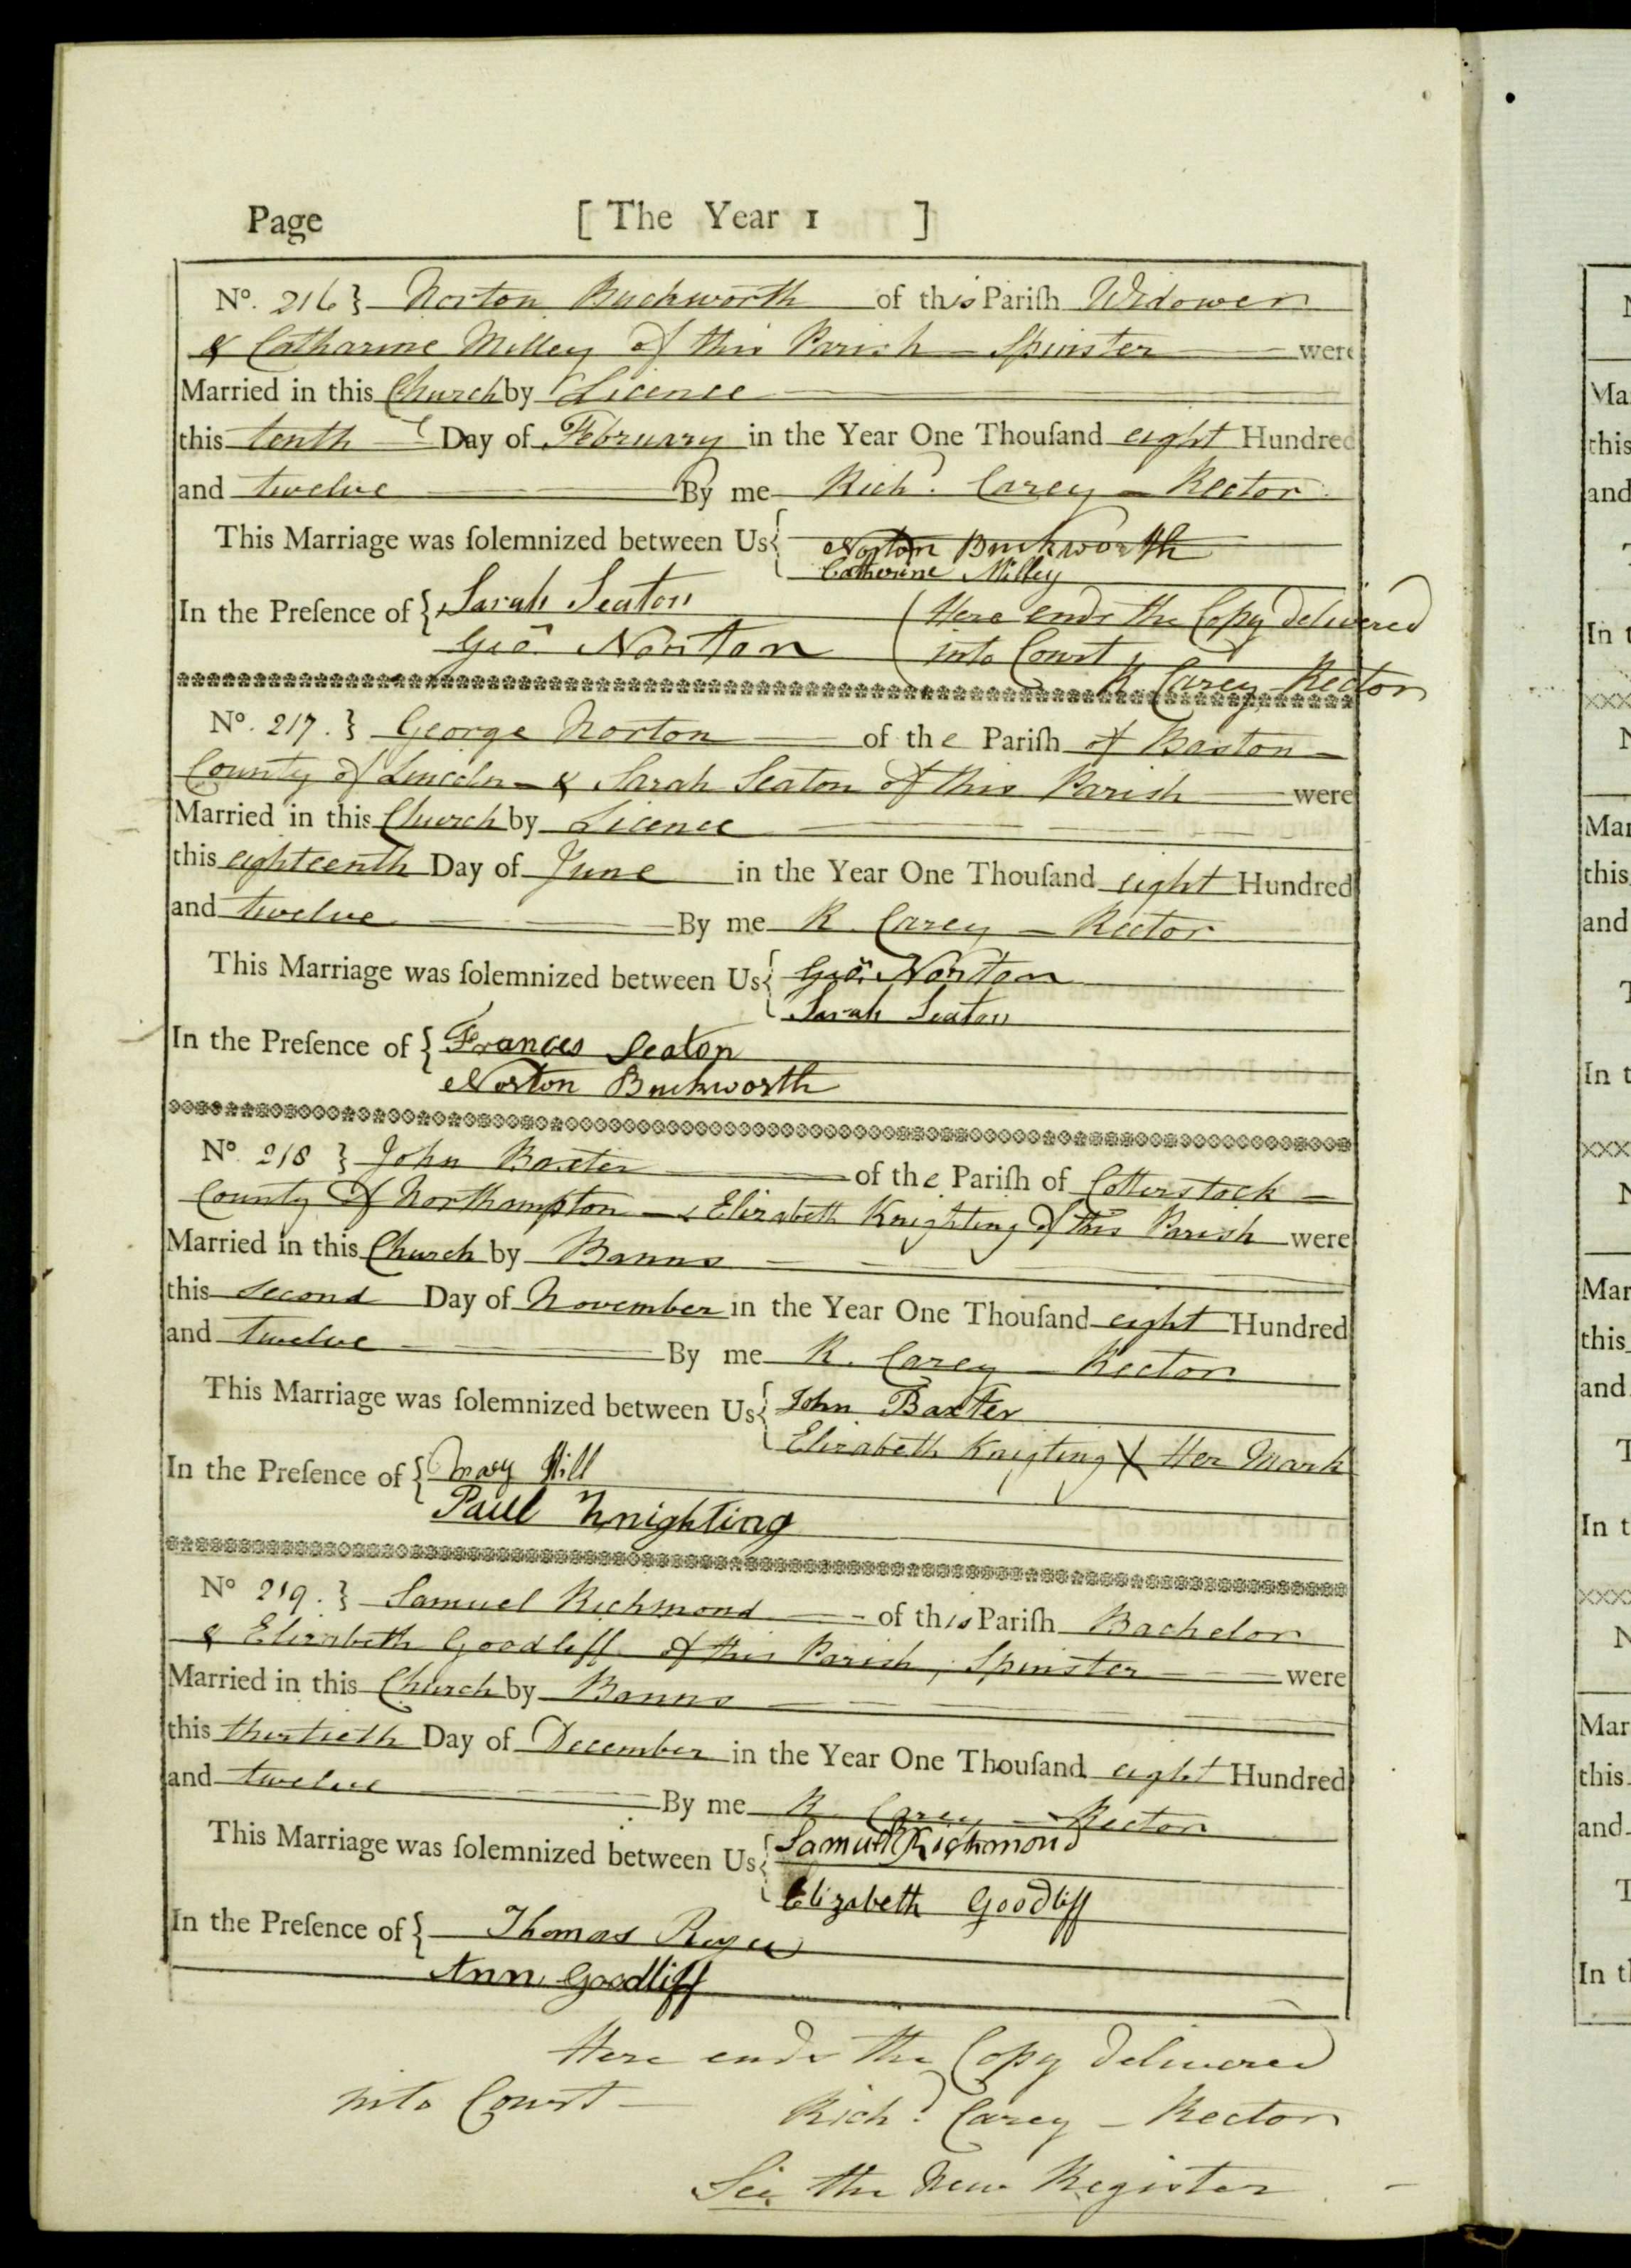 Page [ The Year 1 ]
No. 216 } Norton Buckworth of this Pariſh Widower
& Catharine Milley of this Parish Spinster were
Married in this Church by Licence
this tenth Day of February in the Year One Thouſand eight Hundred
and twelve By me Richd. Carey Rector
This Marriage was ſolemnized between Us { Norton Buckworth
Catherine Milley
In the Preſence of { Sarah Seaton
Geo. Norton
( Here ends the Copy delivered
into Court
R Carey Rector
No. 217. } George Norton of the Pariſh of Baston
County of Lincoln & Sarah Seaton of this Parish were
Married in this Church by Licence
this eighteenth Day of June in the Year One Thouſand eight Hundred
and twelve By me R. Carey Rector
This Marriage was ſolemnized between Us { Geo. Norton
Sarah Seaton
In the Preſence of { Frances Seaton
Norton Buckworth
No. 218 } John Baxter of the Pariſh of Cotterstock
County of Northampton & Elizabeth Knighting of this Parish were
Married in this Church by Banns
this second Day of November in the Year One Thouſand eight Hundred
and twelve By me R. Carey Rector
This Marriage was ſolemnized between Us { John Baxter
Elizabeth Knigting X Her Mark
In the Preſence of { Mary Hill
Paul Knighting
No 219. } Samuel Richmond of this Pariſh Bachelor
& Elizabeth Goodliff of this Parish, Spinster were
Married in this Church by Banns
this thirtieth Day of December in the Year One Thouſand eight Hundred
and twelve By me R. Carey Rector
This Marriage was ſolemnized between Us { Samuel Richmond
Elizabeth Goodliff
In the Preſence of { Thomas
Ann Goodliff
Here ends the Copy delivered
into Court
Richd. Carey Rector
See the New Register